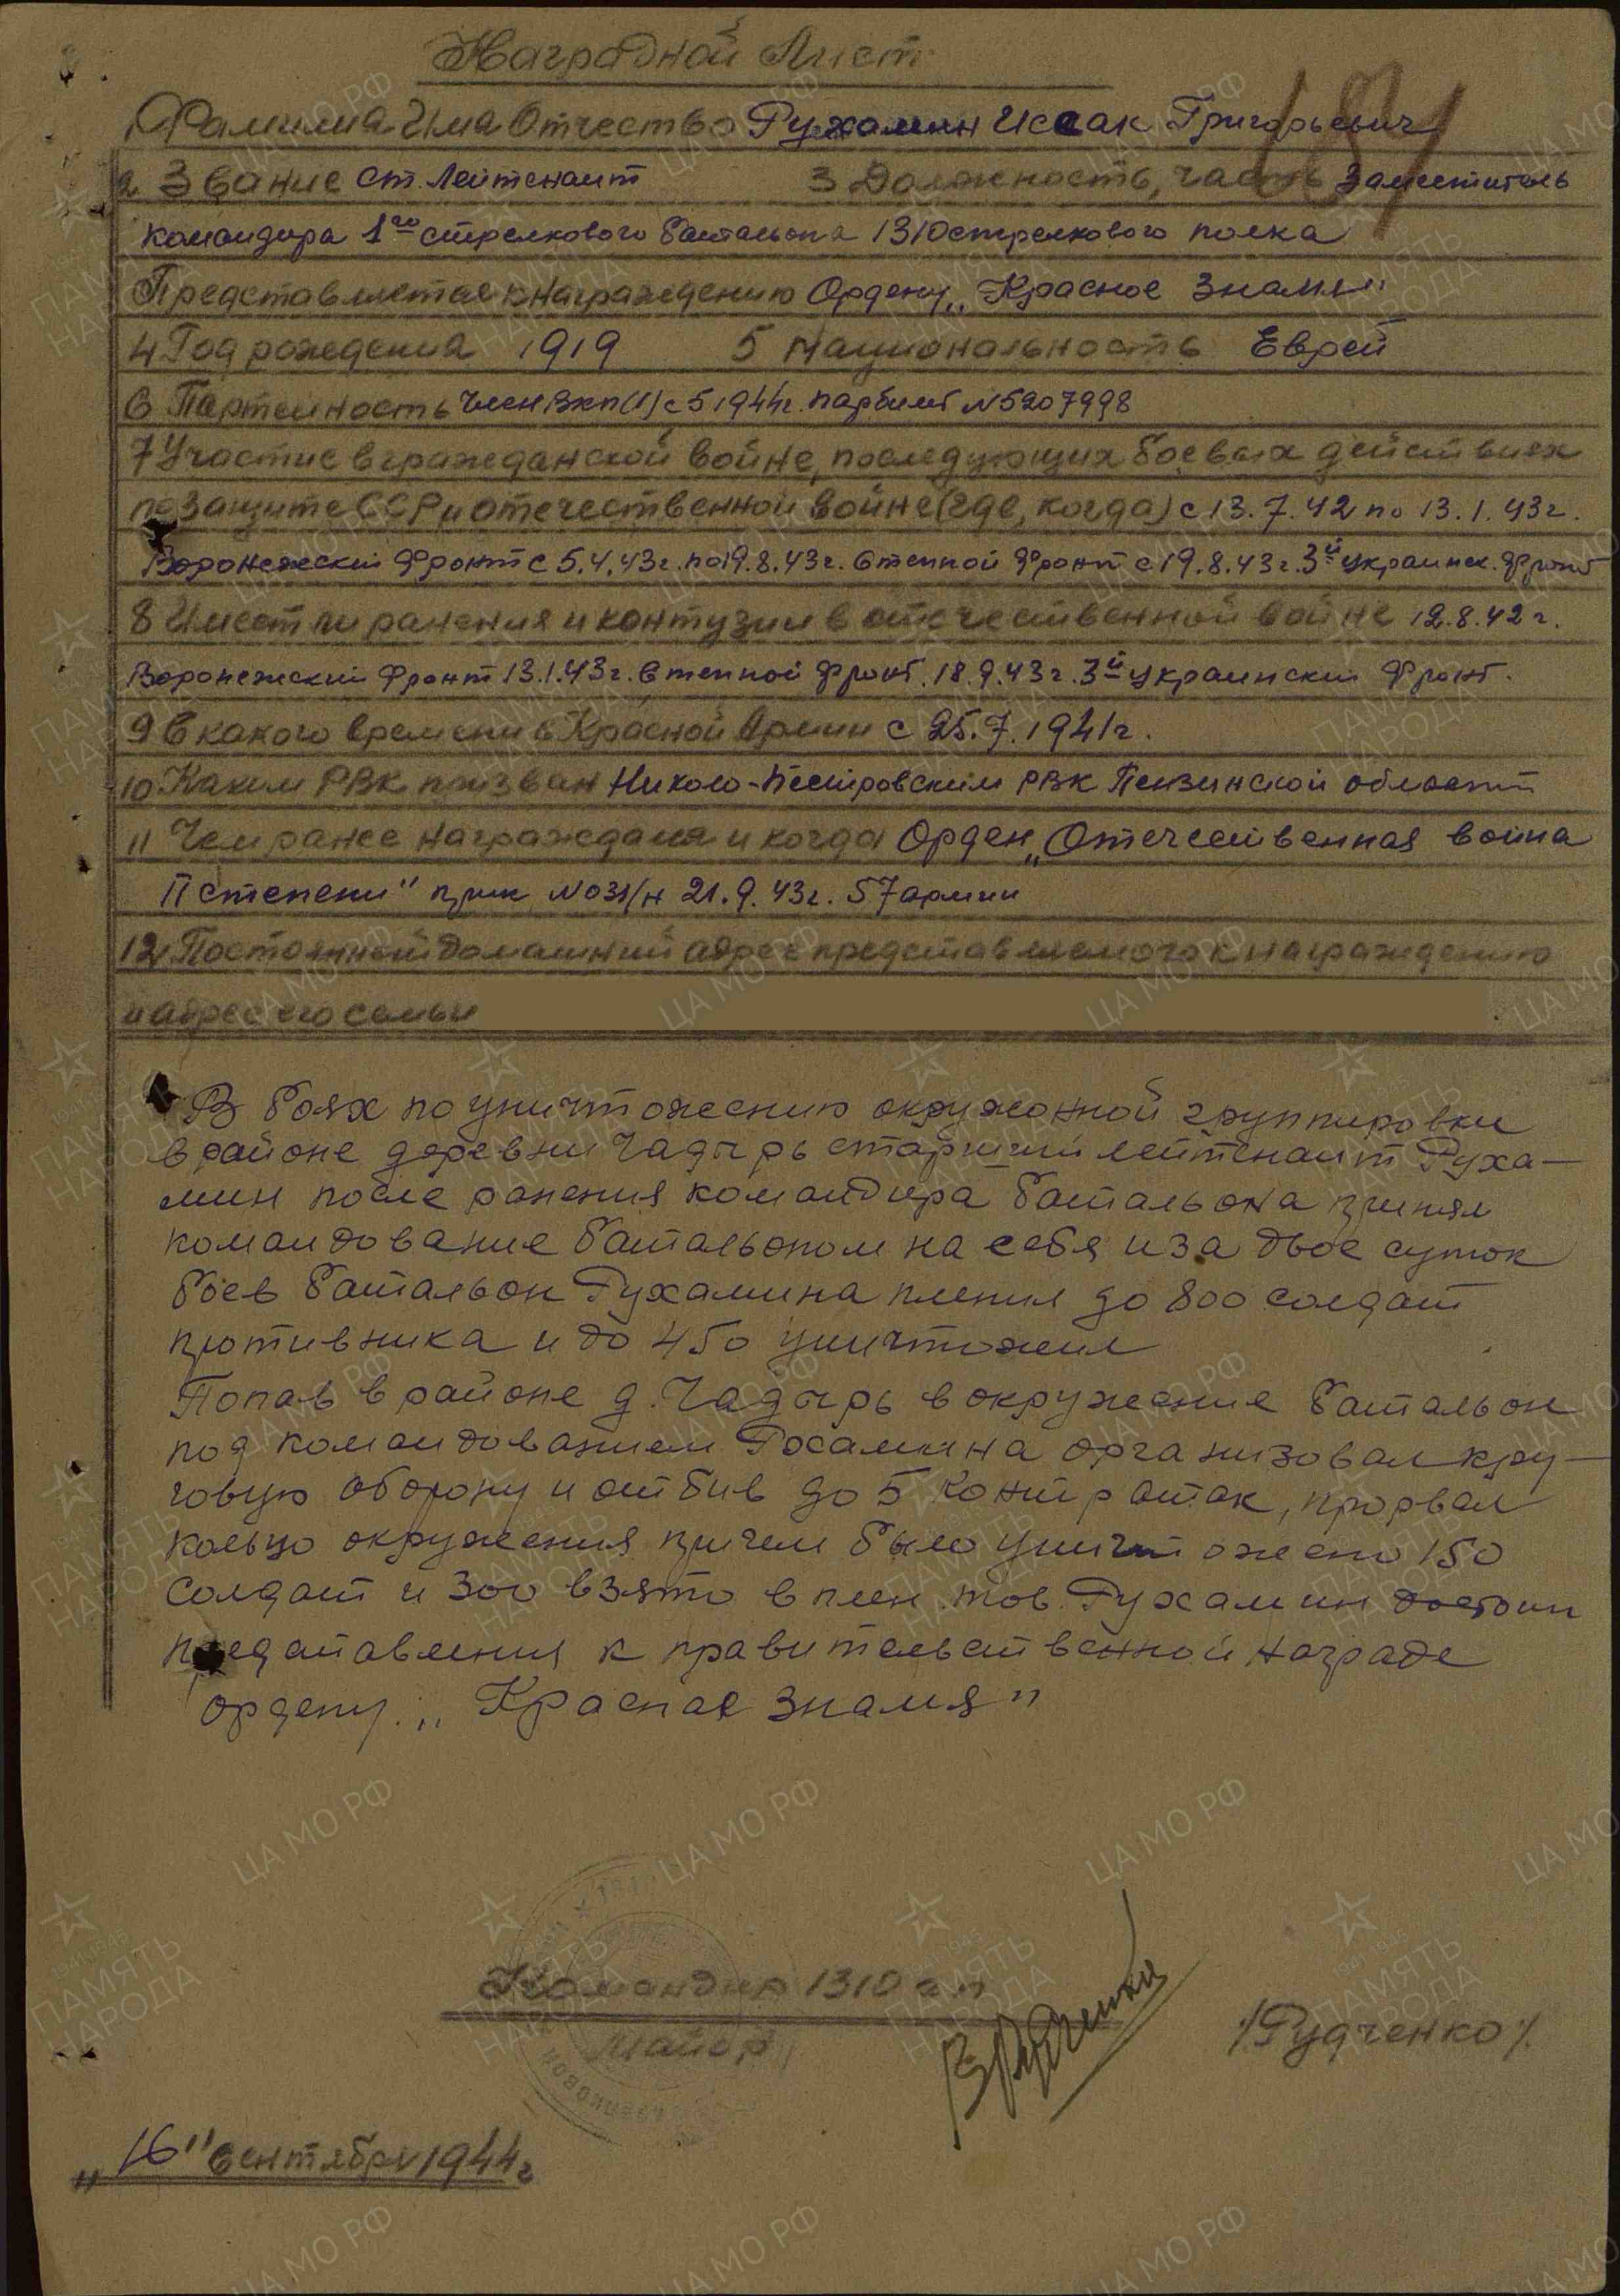 Наградной Лист
1 Фамилия Имя Отчество Рухамин Исаак Григорьевич
2 Звание Ст. Лейтенант 3 Должность, часть Заместитель
командира 1го стрелкового батальона 1310 стрелкового полка
Представляется к награждению Ордену „Красное Знамя"
4 Год рождения 1919 5 Национальность Еврей
6 Партейность член ВКП(б) с 5 1944г. парбилет N 5207998
7 Участие в гражданской войне, последующих боевых действиях
по защите СССР и отечественной войне (где, когда) с 13.7.42 по 13.1.43г.
Воронежский фронт с 5.4.43г. по 19.8.43г. Степной фронт с 19.8.43г. 3й украинск. фронт
8 Имеет ли ранения и контузии в отечественной войне 12.8.42г.
Воронежский фронт 13.1.43г. Степной фронт. 18.9.43г. 3й украинский фронт.
9 С какого времени в Красной Армии с 25.7.1941г.
10 Каким РВК призван Николо-Пестровским РВК Пензинской области
11 Чем ранее награждался и когда Орден „Отечественная война
II степени" прик N 031/н 21.9.43г. 57 армии
12 Постоянный домашний адрес представляемого к награждению
и адрес его семьи
В боях по уничтожению окружонной группировки
в районе деревни Чадырь старший лейтенант Руха-
мин после ранения командира батальона принял
командование батальоном на себя и за двое суток
боев батальон Рухамина пленил до 800 солдат
противника и до 450 уничтожил
Попав в районе д. Чадырь в окружение батальон
под командованием Рхамина организовал кру-
говую оборону и отбив до 5 контратак, прорвал
кольцо окружения причем было уничтожено 150
солдат и 300 взято в плен. тов. Рухамин достоин
представления к правительственной награде
ордену. „Красное Знамя"
Командир 1310 сп
майор
/Рудченко/.
„16" сентября 1944г
187
ПАМЯТЬ НАРОДА
ЦА МО РФ